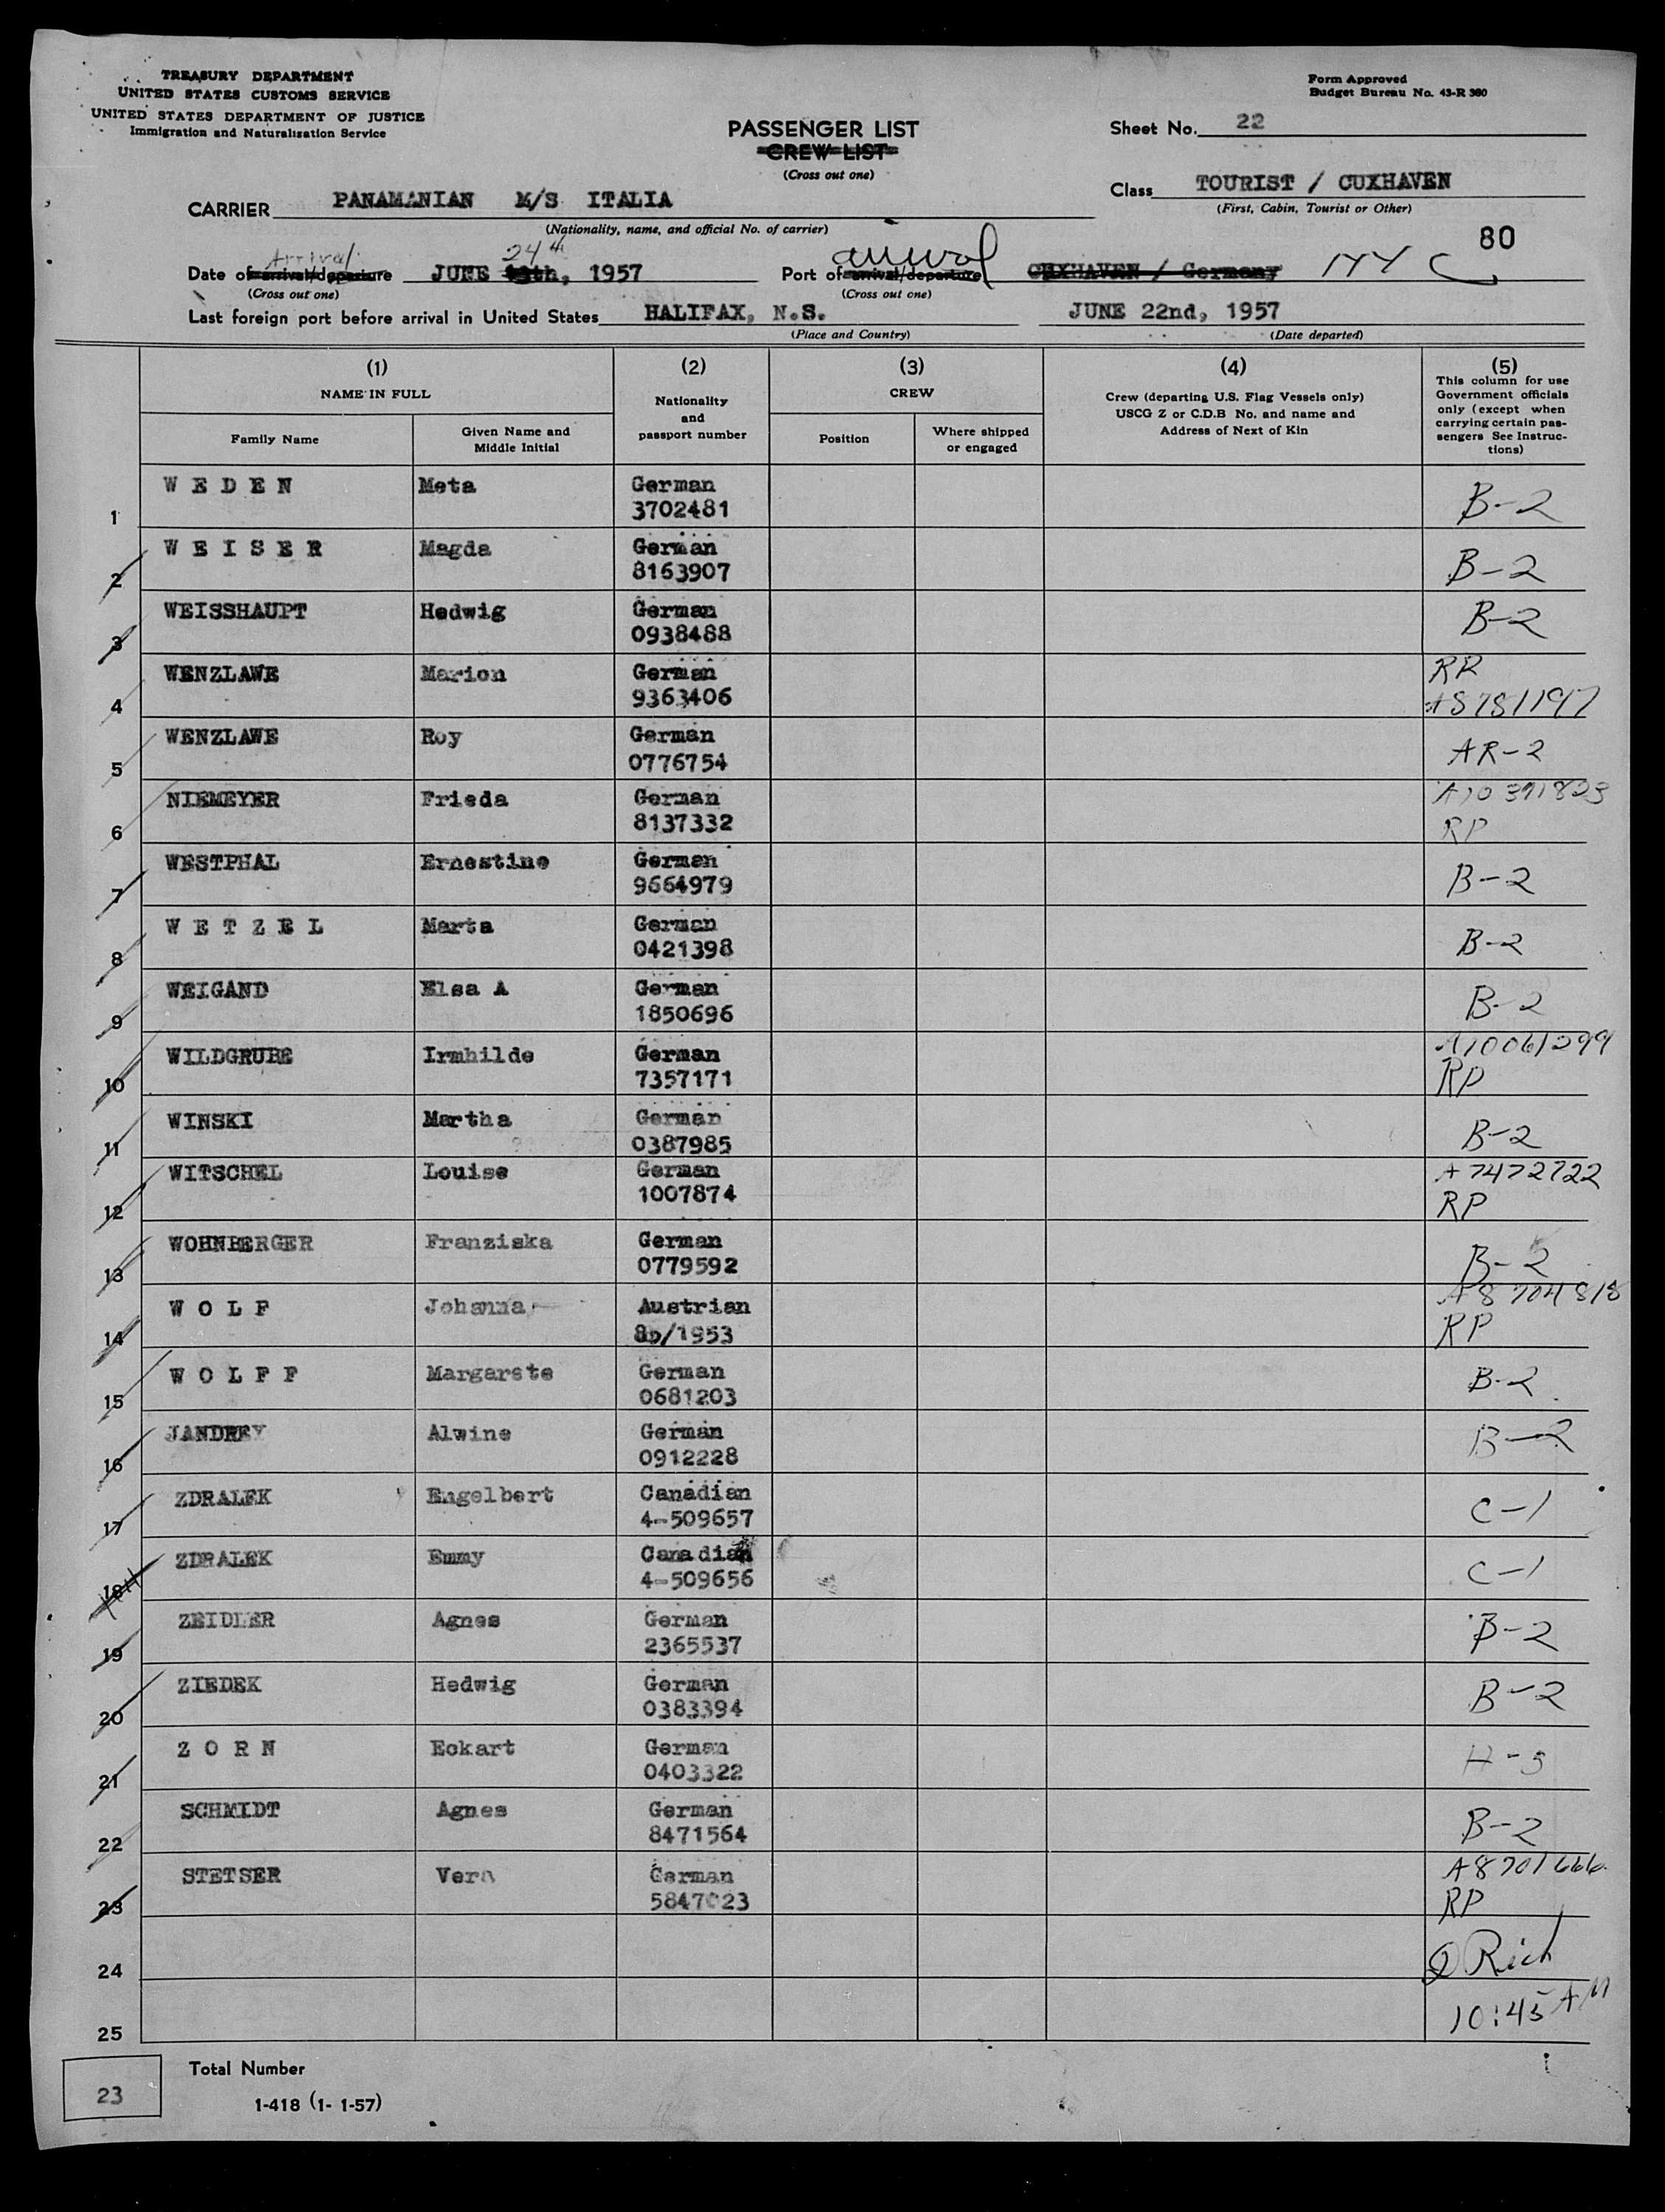 TREASURY DEPARTMENT
UNITED STATES CUSTOMS SERVICE
UNITED STATES DEPARTMENT OF JUSTICE
Immigration and Naturalization Service
Form Approved
Budget Bureau No. 43-R 380
PASSENGER LIST
CREW LIST
(Cross out one)
Sheet No. 22
Class TOURIST / CUXHAVEN
(First, Cabin, Tourist or Other)
CARRIER PANAMANIAN M/S ITALIA
(Nationality, name, and official No. of carrier)
80
Arrival 24th arrival
Date of arrival/departure JUNE th, 1957 Port of arrival/departure CUXHAVEN / Germany NYC
(Cross out one) (Cross out one)
Last foreign port before arrival in United States HALIFAX, N.S. JUNE 22nd, 1957
(Place and Country) (Date departed)
(1) (2) (3) (4) (5)
NAME IN FULL Nationality and passport number CREW Crew (departing U.S. Flag Vessels only) USCG Z or C.D.B No. and name and Address of Next of Kin This column for use Government officials only (except when carrying certain passengers See Instructions)
Family Name Given Name and Middle Initial Position Where shipped or engaged
1 W E D E N Meta German 3702481 B-2
2 W E I S E R Magda German 8163907 B-2
3 WEISSHAUPT Hedwig German 0938488 B-2
4 WENZLAWE Marion German 9363406 A8781197
5 WENZLAWE Roy German 0776754 AR-2
6 NIEMEYER Frieda German 8137332 RP
7 WESTPHAL Ernestine German 9664979 B-2
8 W E T Z E L Marta German 0421398 B-2
9 WEIGAND Elsa A German 1850696 B-2
10 WILDGRUBE Irmhilde German 7357171 A10061299 RP
11 WINSKI Martha German 0387985 B-2
12 WITSCHEL Louise German 1007874 A7472722 RP
13 WOHNBERGER Franziska German 0779592 B-2
14 W O L F Johanna Austrian /1953 A8704818 RP
15 W O L F F Margarete German 0681203 B-2
16 JANDREY Alwine German 0912228 B-2
17 ZDRALEK Engelbert Canadian 4-509657 C-1
18 ZDRALEK Emmy Canadian 4-509656 C-1
19 ZEIDLER Agnes German 2365537 B-2
20 ZIEDEK Hedwig German 0383394 B-2
21 Z O R N Eckart German 0403322 H-3
22 SCHMIDT Agnes German 8471564 B-2
23 STETSER Vera German 5847023 A8701666 RP
24 Rich
25 10:45 AM
23 Total Number
1-418 (1- 1-57)